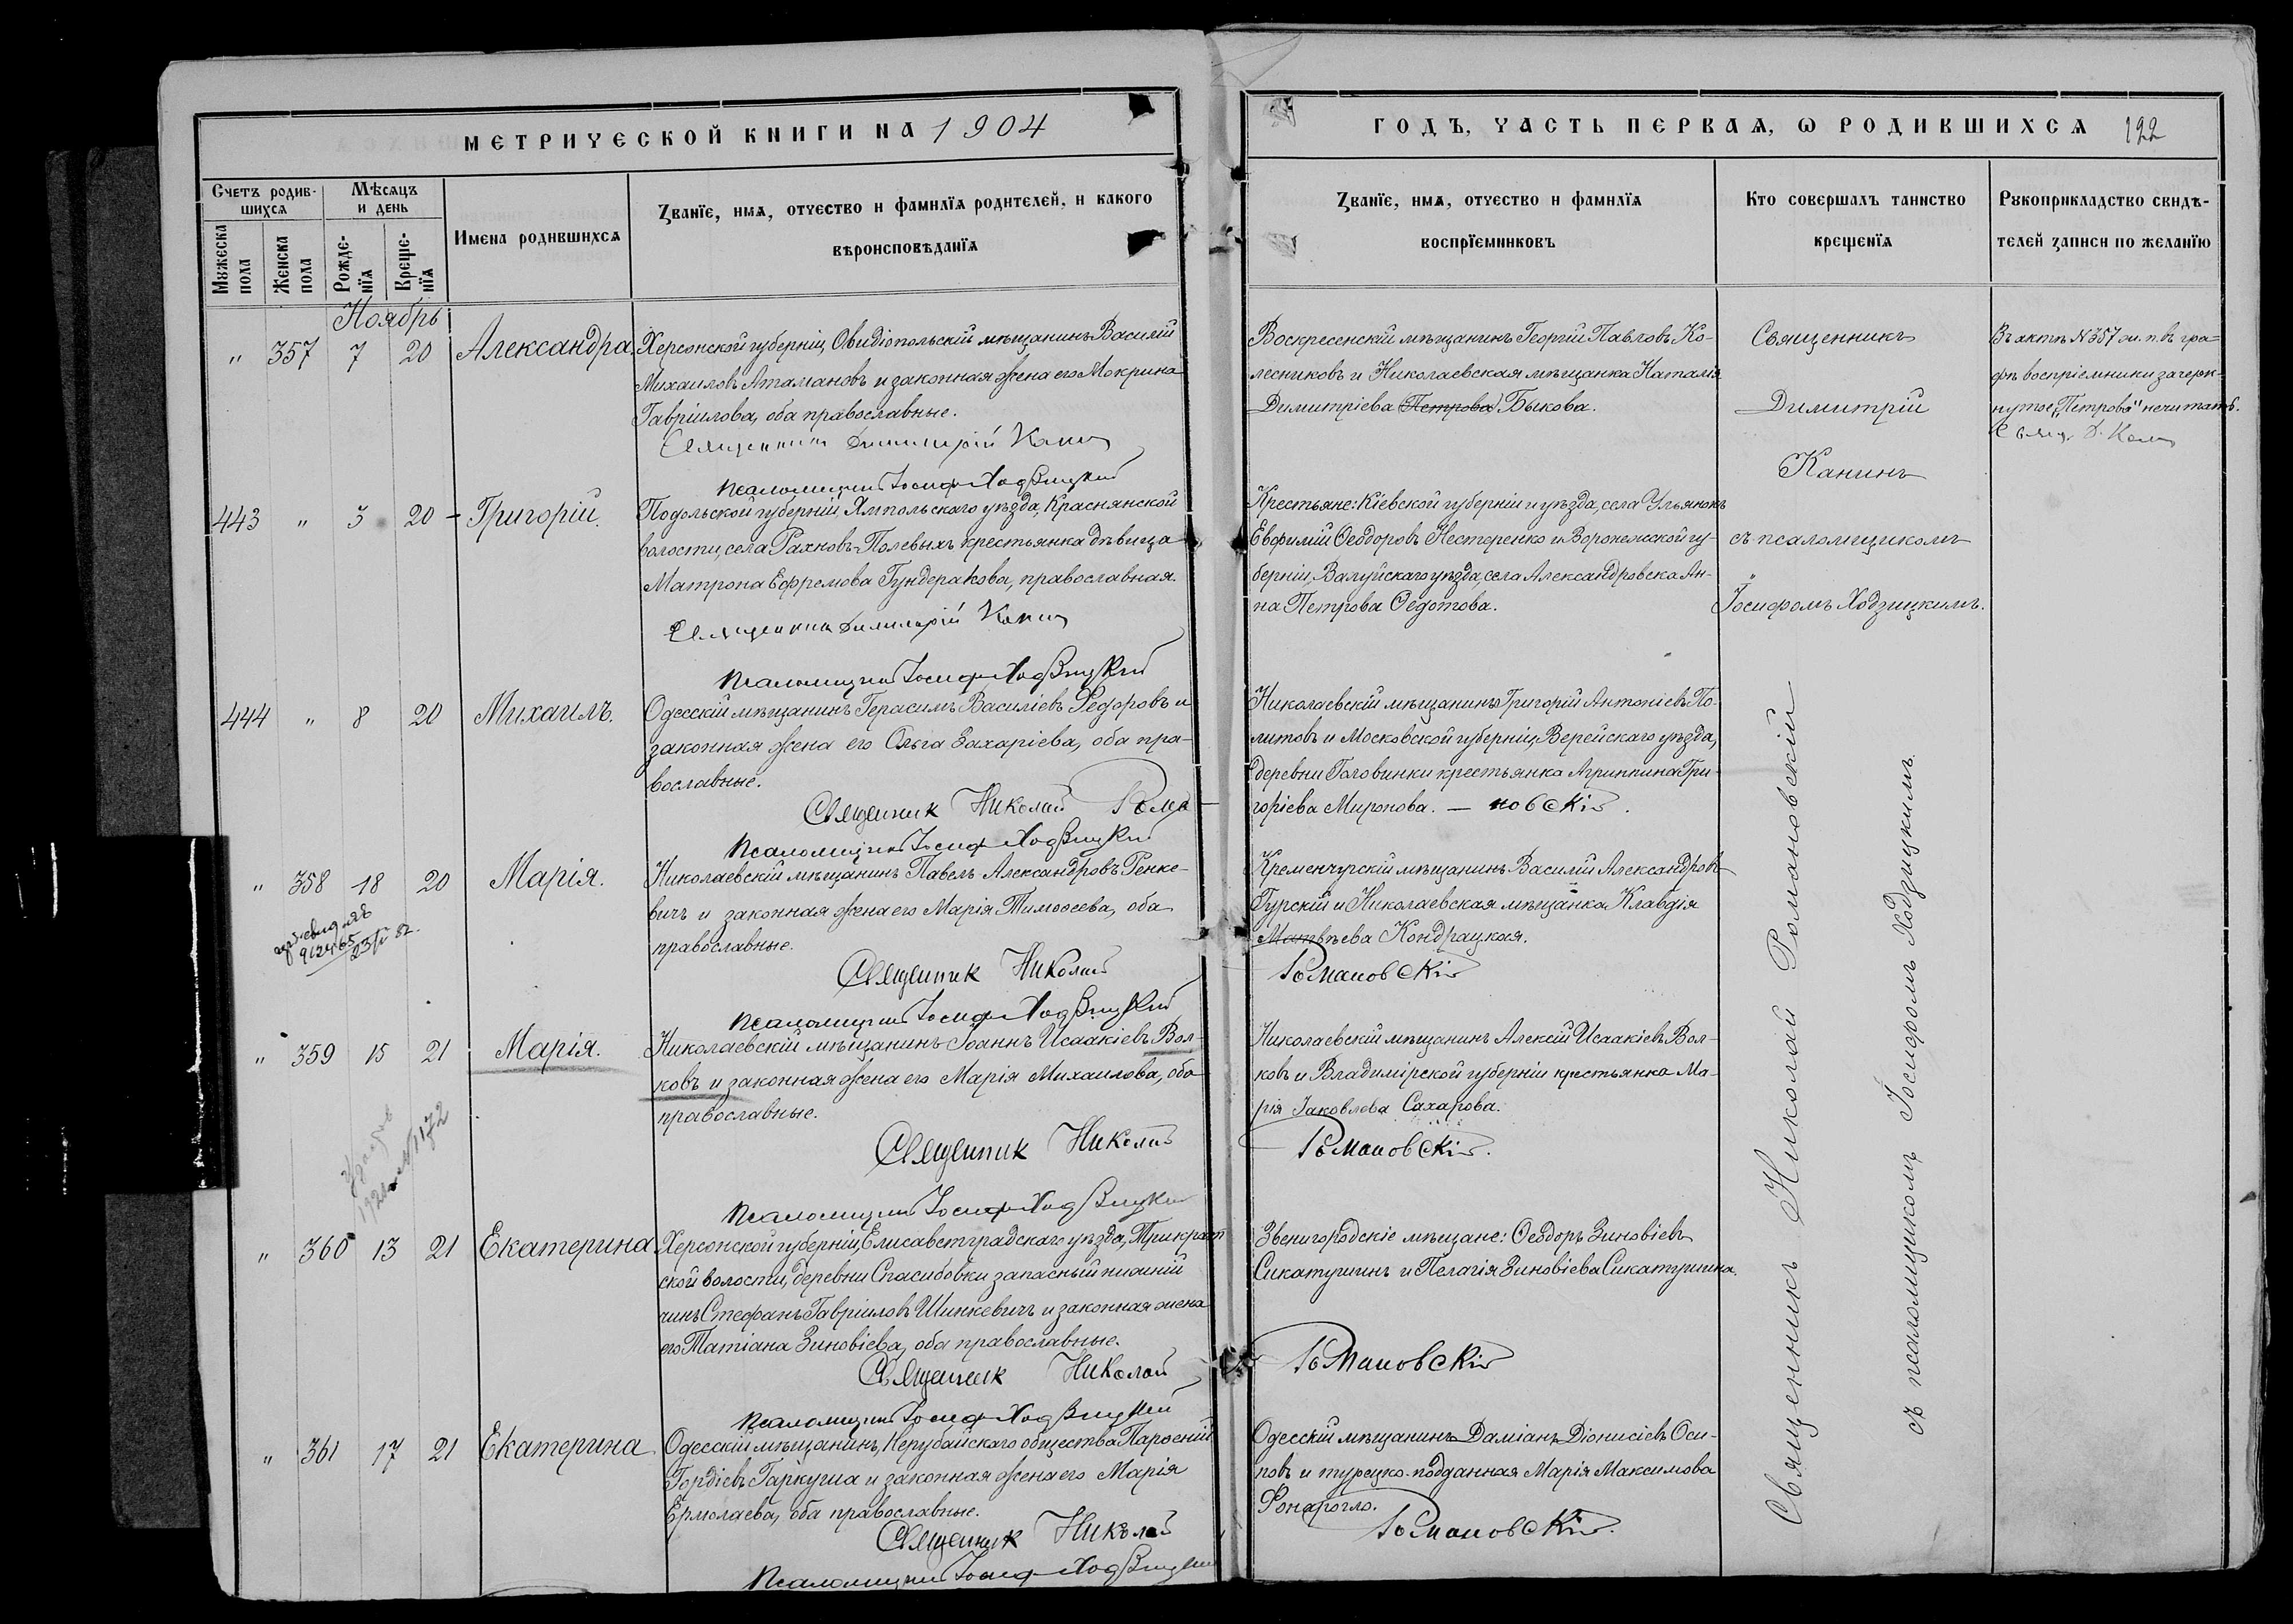 МЕТРИЧЕСКОЙ КНИГИ НА 1904
ГОДЪ, ЧАСТЬ ПЕРВАЯ, Ѡ РОДИВШИХСЯ 122
Счетъ родив-
шихся
Мужеска
пола
Женска
пола
Мѣсяцъ
и день
Рожде-
нїя
Креще-
нїя
Имена родившихся
Званїе, имя, отчество и фамилїя родителей, и какого
вѣроисповѣданїя
Званїе, имя, отчество и фамилїя
воспрїемниковъ
Кто совершалъ таинство
крещенїя
Рукоприкладство свидѣ-
телей записи по желанїю
Ноябрь
" 357 7 20 Александра
Херсонской губерніи, Овидіопольскій мѣщанинъ Василій
Михаиловъ Атамановъ и законная жена его Мокрина
Гавріилова, оба православные.
Священникъ Димитрій Канинъ
Псаломщикъ Іосифъ Ходзицкій
Воскресенскій мѣщанинъ Георгій Павловъ Ко-
лесниковъ и Николаевская мѣщанка Наталія
Димитріева Петрова Быкова.
Священникъ
Димитрій
Канинъ
съ псаломщикомъ
Іосифомъ Ходзицкимъ.
Въ актѣ №357 ж. п. въ гра-
фѣ воспріемники зачерк-
нутое "Петрова" не читать.
Свящ. Д. Канинъ
443 " 3 20 Григорій.
Подольской губерніи, Ямпольскаго уѣзда, Краснянской
волости, села Рахновъ-Полевыхъ крестьянка дѣвица
Матрона Ефремова Гундеракова, православная.
Священникъ Димитрій Канинъ
Псаломщикъ Іосифъ Ходзицкій
Крестьяне: Кіевской губерніи и уѣзда, села Ульянокъ
Евфимій Ѳеодоровъ Нестеренко и Воронежской гу-
берніи, Валуйскаго уѣзда, села Александровска Ан-
на Петрова Ѳедотова.
444 " 8 20 Михаилъ.
Одесскій мѣщанинъ Герасимъ Василіевъ Федоровъ и
законная жена его Ольга Захаріева, оба пра-
вославные.
Священник Николай Рома-
Псаломщикъ Іосифъ Ходзицкій
Николаевскій мѣщанинъ Григорій Антоніевъ По-
литовъ и Московской губерніи, Верейскаго уѣзда,
деревни Головинки крестьянка Агриппина Гри-
горіева Миронова. — новскій.
" 358 18 20 Марія.
Николаевскій мѣщанинъ Павелъ Александровъ Ренке-
вичъ и законная жена его Марія Тимоѳеева, оба
православные.
Священник Николай
Псаломщикъ Іосифъ Ходзицкій
Кременчугскій мѣщанинъ Василій Александровъ
Гурскій и Николаевская мѣщанка Клавдія
Матвѣева Кондрацкая.
Романовскій
" 359 15 21 Марія.
Николаевскій мѣщанинъ Іоаннъ Исаакіевъ Вол-
ковъ и законная жена его Марія Михаилова, оба
православные.
Священник Николай
Псаломщикъ Іосифъ Ходзицкій
Николаевскій мѣщанинъ Алексій Исаакіевъ Вол-
ковъ и Владимірской губерніи крестьянка Ма-
рія Іаковлева Сахарова.
Романовскій.
" 360 13 21 Екатерина
Херсонской губерніи, Елисаветградскаго уѣзда, Трикрат-
ской волости, деревни Спасибовки запасный нижній
чинъ Стефанъ Гавріиловъ Шинкевичъ и законная жена
его Татіана Зиновіева, оба православные.
Священник Николай
Псаломщикъ Іосифъ Ходзицкій
Звенигородскіе мѣщане: Ѳеодоръ Зиновіевъ
Сикатушинъ и Пелагія Зиновіева Сикатушина.
Романовскій
" 361 17 21 Екатерина
Одесскій мѣщанинъ, Нерубайскаго общества Парѳеній
Гордіевъ Гаркуша и законная жена его Марія
Ермолаева, оба православные.
Священник Николай
Псаломщикъ Іосифъ Ходзицкій
Одесскій мѣщанинъ Даміанъ Діонисіевъ Оси-
повъ и турецко-подданная Марія Максимова
Фонарогло.
Романовскій.
Священникъ Николай Романовскій
съ псаломщикомъ Іосифомъ Ходзицкимъ.